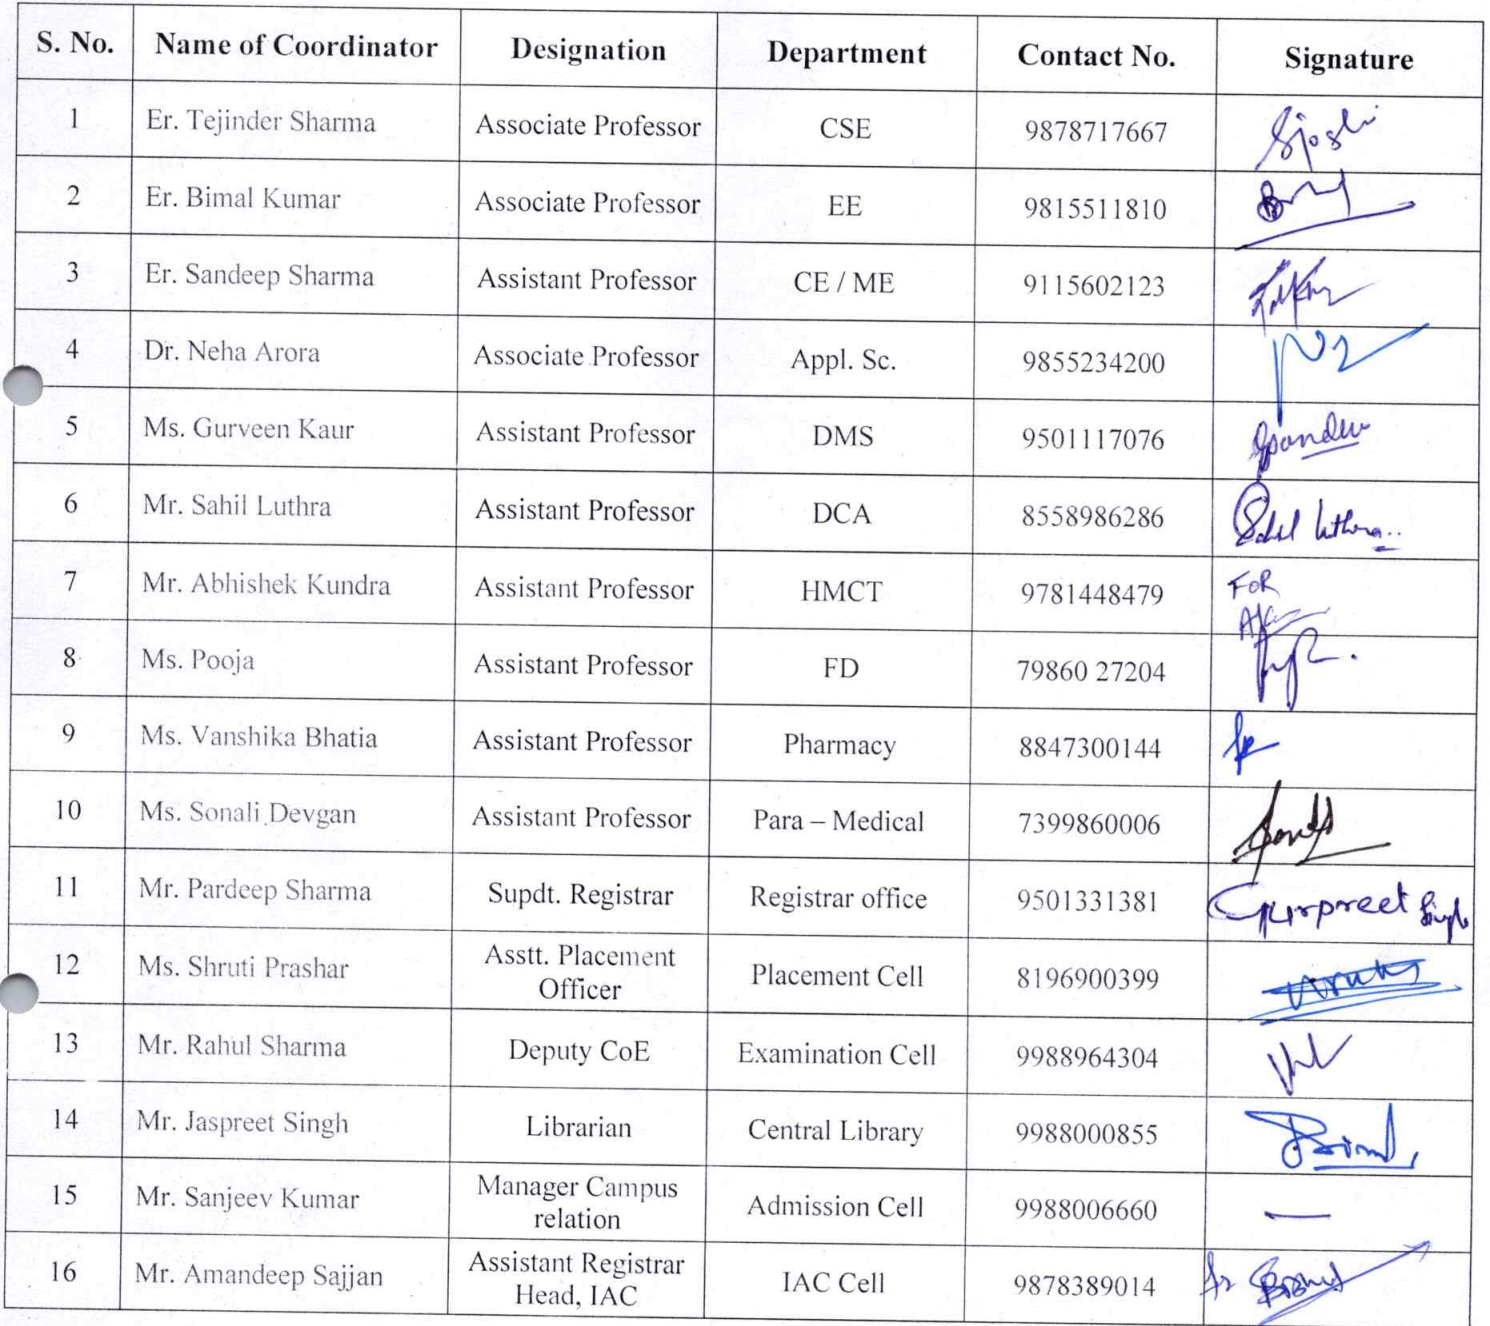 S. No. Name of Coordinator Designation Department Contact No. Signature
1 Er. Tejinder Sharma Associate Professor CSE 9878717667 Sjoshi
2 Er. Bimal Kumar Associate Professor EE 9815511810
3 Er. Sandeep Sharma Assistant Professor CE / ME 9115602123
4 Dr. Neha Arora Associate Professor Appl. Sc. 9855234200
5 Ms. Gurveen Kaur Assistant Professor DMS 9501117076
6 Mr. Sahil Luthra Assistant Professor DCA 8558986286 Sahil Luthra..
7 Mr. Abhishek Kundra Assistant Professor HMCT 9781448479 FOR
8 Ms. Pooja Assistant Professor FD 79860 27204
9 Ms. Vanshika Bhatia Assistant Professor Pharmacy 8847300144
10 Ms. Sonali Devgan Assistant Professor Para – Medical 7399860006
11 Mr. Pardeep Sharma Supdt. Registrar Registrar office 9501331381 Gurpreet Singh
12 Ms. Shruti Prashar Asstt. Placement
Officer Placement Cell 8196900399
13 Mr. Rahul Sharma Deputy CoE Examination Cell 9988964304
14 Mr. Jaspreet Singh Librarian Central Library 9988000855
15 Mr. Sanjeev Kumar Manager Campus
relation Admission Cell 9988006660 —
16 Mr. Amandeep Sajjan Assistant Registrar
Head, IAC IAC Cell 9878389014